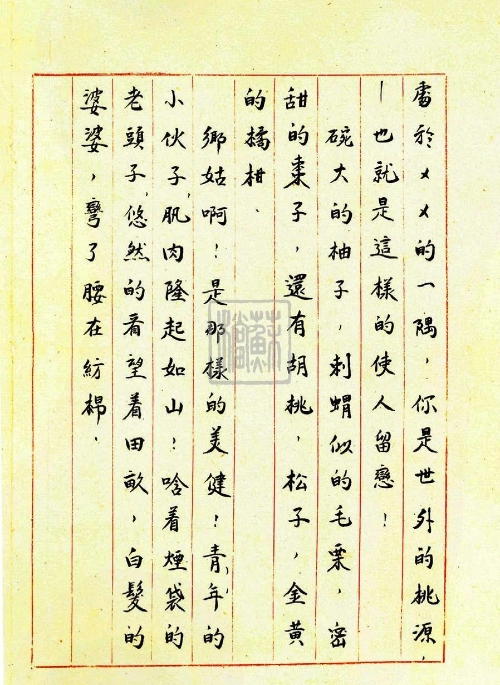 處於㐅㐅的一隅，你是世外的桃源，
—也就是這樣的使人留戀！
碗大的柚子，刺蝟似的毛栗，密
甜的棗子，還有胡桃，松子，金黃
的橘柑．
鄉姑啊！是那樣的美健！青年的
小伙子，肌肉隆起如山！啥着煙袋的
老頭子，悠然的看望着田畝，白髮的
婆婆，彎了腰在紡棉．